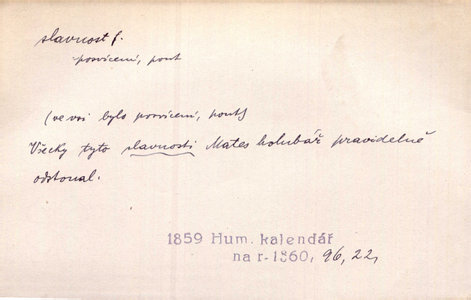 slavnost f.
posvícení, pout
(ve vsi bylo posvícení, pout)
Všecky tyto slavnosti Mates holubář pravidelně
odstonal.
1859 Hum. kalendář
na r. 1860, 96, 22,